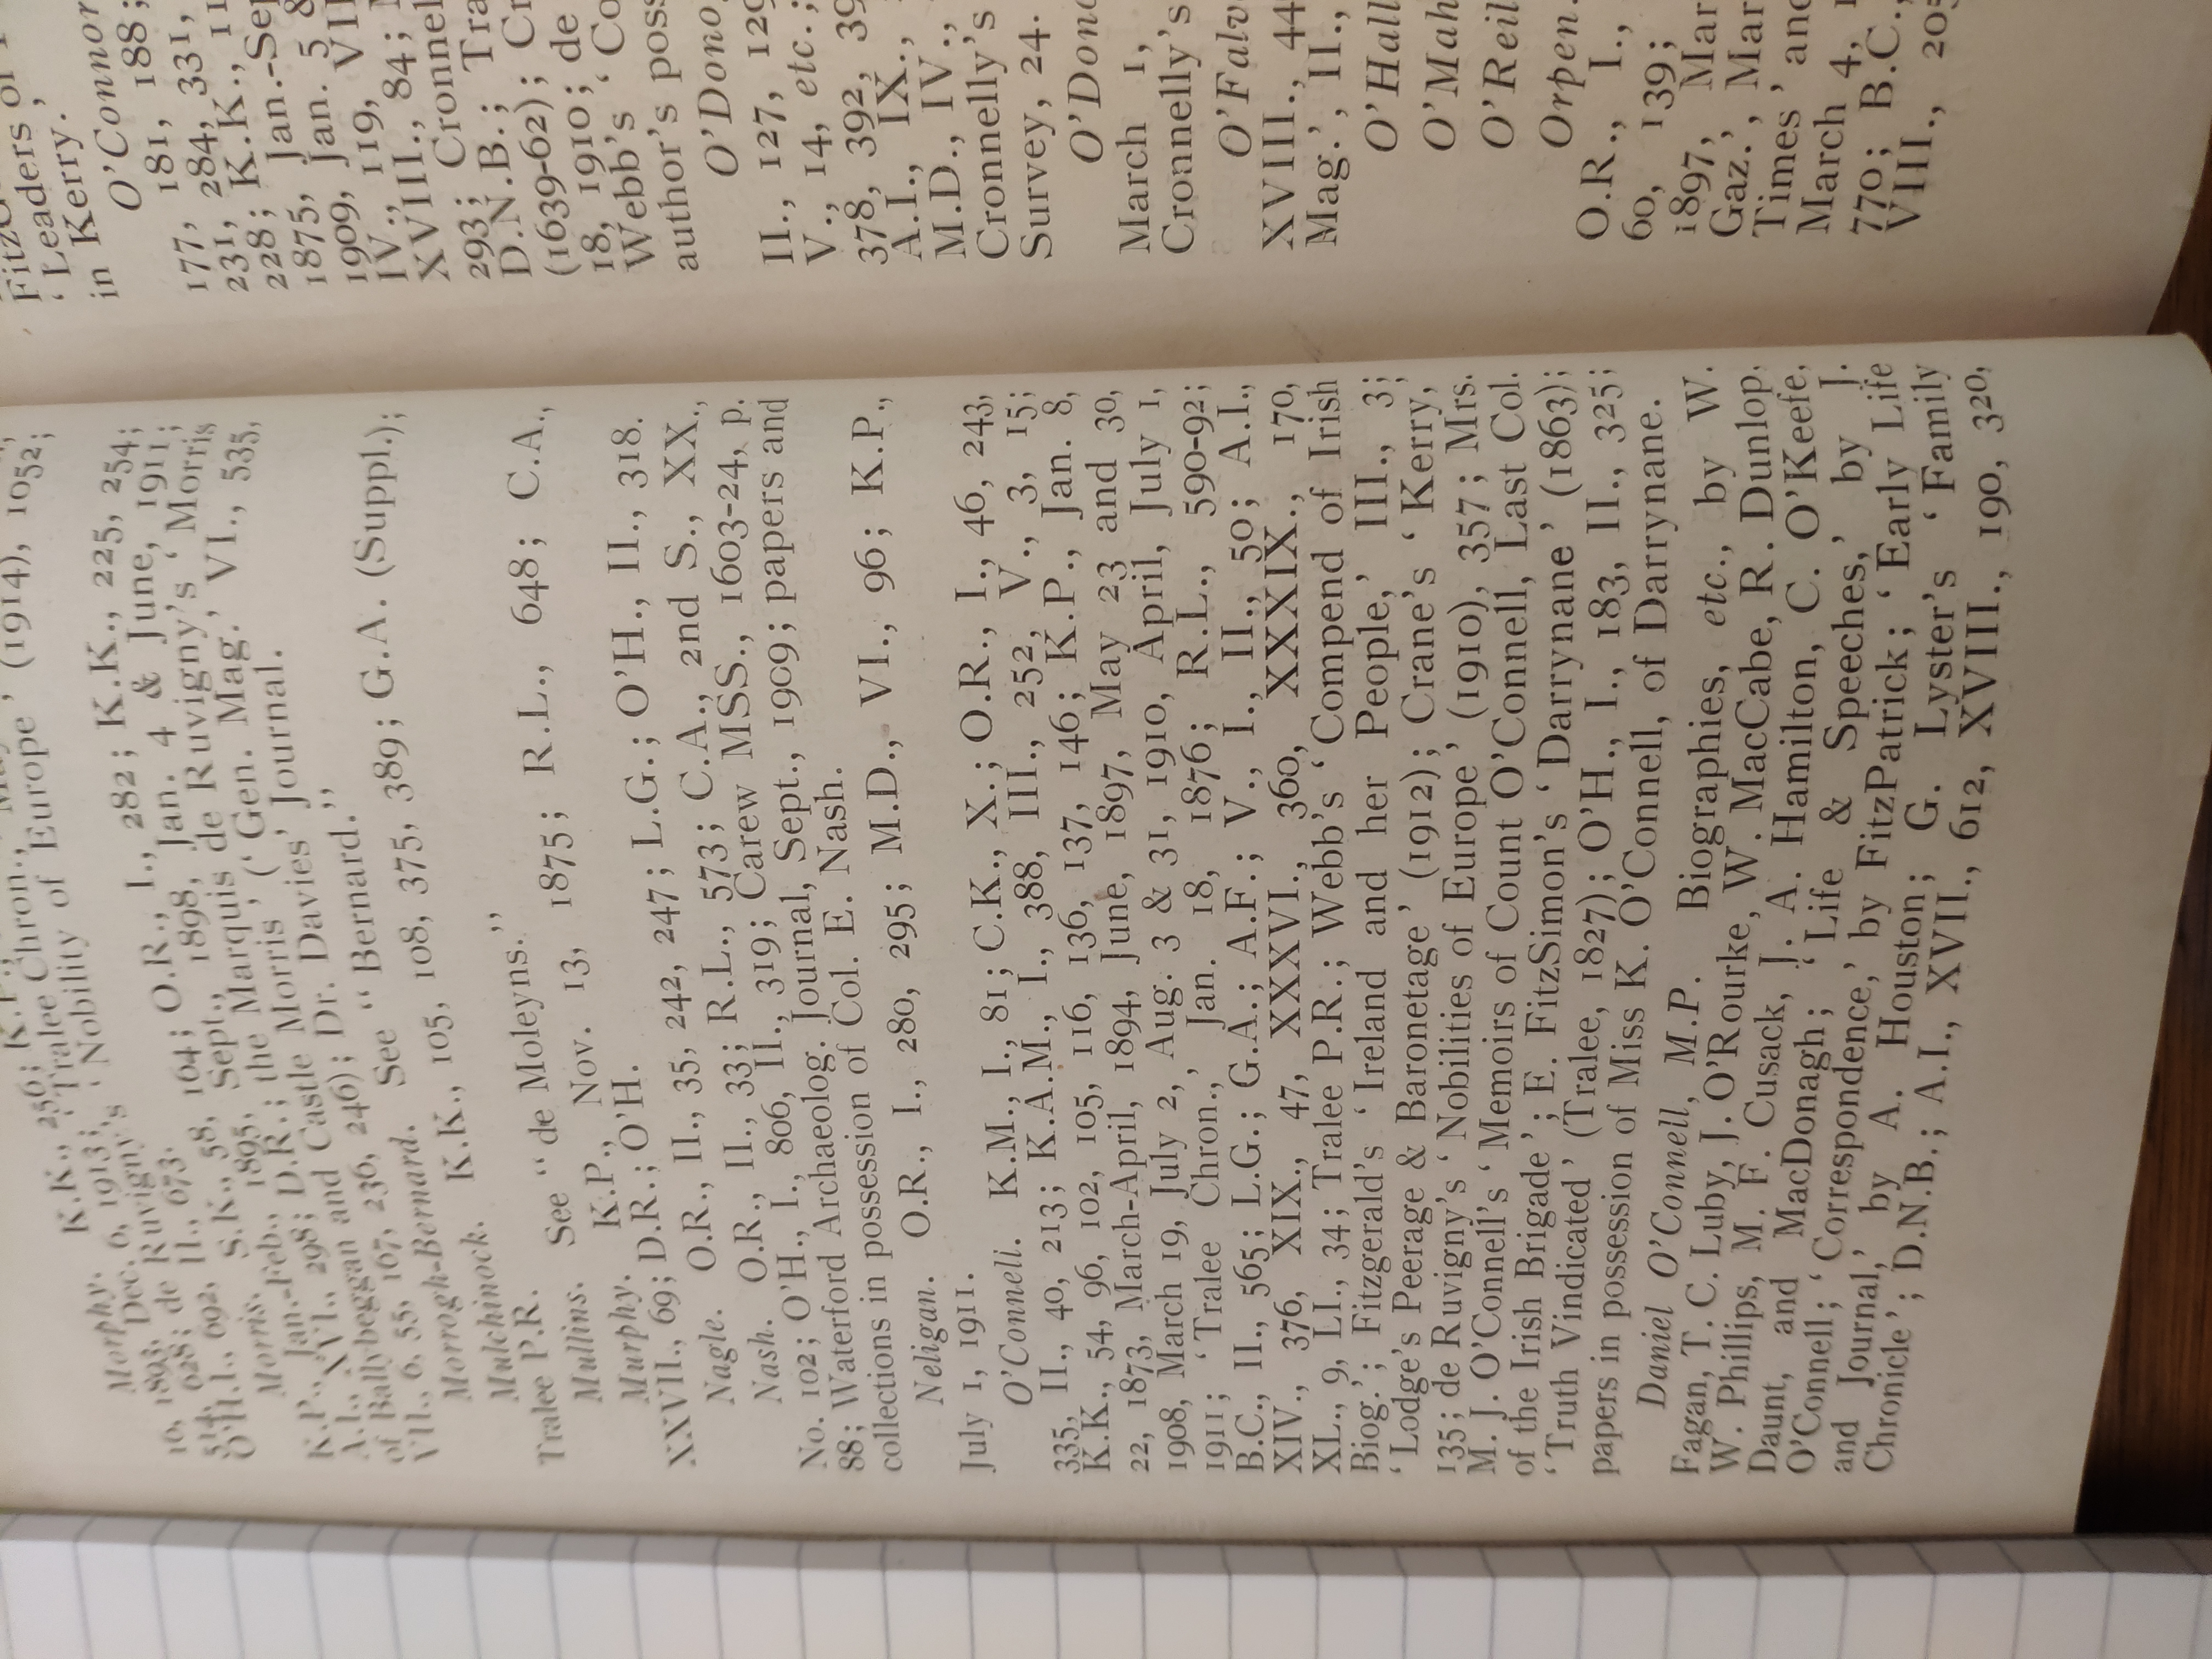 K.K., 256; K.P.,
Morphy. Tralee Chron.,
Dec. 6, 1913; ' Nobility of Europe ' (1914), 1052;
10, 1893, de Ruvigny's
514, 628; II., 673.
O'H.I., 692, S.K., 58, 164; O.R., I., 282; K.K., 225, 254;
Morris. Sept., 1898, Jan. 4 & June, 1911;
K.P., Jan.-Feb., 1895, Marquis de Ruvigny's ' Morris
A.I., XVI., 298; D.R.; the Morris ' (' Gen. Mag.' VI., 535,
of Ballybeggan and Castle Morris ' Journal.
VII., 6, 55, 107, 236, 246); Dr. Davies'
Morrogh-Bernard. See “ Bernard.”
Mulchinock. K.K., 105, 108, 375, 389; G.A. (Suppl.);
Tralee P.R.
Mullins. See “ de Moleyns.”
Murphy. K.P., Nov. 13, 1875; R.L., 648; C.A.,
XXVII., 69; D.R.; O'H.
Nagle. O.R., II., 35, 242, 247; L.G.; O'H., II., 318.
Nash. O.R., II., 33; R.L., 573; C.A., 2nd S., XX.,
No. 102; O'H., I., 806, II., 319; Carew MSS., 1603-24, p.
88; Waterford Archaeolog. Journal, Sept., 1909; papers and
collections in possession of Col. E. Nash.
Neligan. O.R., I., 280, 295; M.D., VI., 96; K.P.,
July 1, 1911.
O'Connell. K.M., I., 81; C.K., X.; O.R., I., 46, 243,
335, II., 40, 213; K.A.M., I., 388, III., 252, V., 3, 15;
K.K., 54, 96, 102, 105, 116, 136, 137, 146; K.P., Jan. 8,
22, 1873, March-April, 1894, June, 1897, May 23 and 30,
1908, March 19, July 2, Aug. 3 & 31, 1910, April, July 1,
1911; ' Tralee Chron.,' Jan. 18, 1876; R.L., 590-92;
B.C., II., 565; L.G.; G.A.; A.F.; V., I., II., 50; A.I.,
XIV., 376, XIX., 47, XXXVI., 360, XXXIX., 170,
XL., 9, LI., 34; Tralee P.R.; Webb's ' Compend of Irish
Biog.'; Fitzgerald's ' Ireland and her People,' III., 3;
' Lodge's Peerage & Baronetage ' (1912); Crane's ' Kerry,'
135; de Ruvigny's ' Nobilities of Europe ' (1910), 357; Mrs.
M. J. O'Connell's ' Memoirs of Count O'Connell, Last Col.
of the Irish Brigade '; E. FitzSimon's ' Darrynane ' (1863);
' Truth Vindicated ' (Tralee, 1827); O'H., I., 183, II., 325;
papers in possession of Miss K. O'Connell, of Darrynane.
Daniel O'Connell, M.P. Biographies, etc., by W.
Fagan, T. C. Luby, J. O'Rourke, W. MacCabe, R. Dunlop,
W. Phillips, M. F. Cusack, J. A. Hamilton, C. O'Keefe,
Daunt, and MacDonagh; ' Life & Speeches,' by J.
O'Connell; ' Correspondence,' by FitzPatrick; ' Early Life
and Journal,' by A. Houston; G. Lyster's ' Family
Chronicle '; D.N.B.; A.I., XVII., 612, XVIII., 190, 320,
' Leaders of
in Kerry.
O'Connor
177, 181, 188;
231, 284, 331,
228; K.K., 11
1875, Jan.-Sep
1909, Jan. 5 &
IV., 119, VII
XVIII., 84;
293; Cronnel
D.N.B.; Tra
(1639-62); Cr
18, 1910; de
Webb's ' Co
author's poss
O'Dono
II., 127, 129
V., 14, etc.;
378, 392, 39
A.I., IX.,
M.D., IV.,
Cronnelly's
Survey, 24.
O'Dono
March 1,
Cronnelly's
O'Falv
XVIII., 44
Mag.', II.,
O'Hall
O'Mah
O'Reil
Orpen.
O.R., I.,
60, 139;
1897, Mar
Gaz., Mar
Times ' and
March 4,
770; B.C.,
VIII., 205